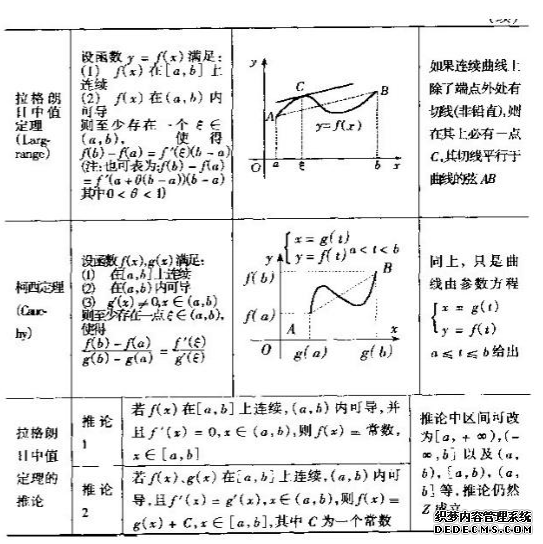 (续表)
拉格朗
日中值
定理
(Larg-
range)
设函数 y = f(x) 满足:
(1) f(x) 在[a,b] 上
连续
(2) f(x) 在(a,b) 内
可导
则至少存在一个 ξ∈
(a,b), 使得
f(b)-f(a)=f′(ξ)(b-a)
(注:也可表为:f(b)-f(a)
=f′(a+θ(b-a))(b-a)
其中0<θ<1)
y
C
B
A
y=f(x)
O a ξ b x
如果连续曲线上
除了端点外处有
切线(非铅直),则
在其上必有一点
C,其切线平行于
曲线的弦AB
柯西定理
(Cauc-
hy)
设函数f(x),g(x)满足:
(1) 在[a,b]上连续
(2) 在(a,b)内可导
(3) g′(x)≠0,x∈(a,b)
则至少存在一点ξ∈(a,b),
使得
f(b)-f(a)/g(b)-g(a)=f′(ξ)/g′(ξ)
{x=g(t)
y=f(t) a<t<b
y
f(b)
B
f(a)
A
x
O g(a) g(b)
同上,只是曲
线由参数方程
{x=g(t)
y=f(t)
a≤t≤b给出
拉格朗
日中值
定理的
推论
推论
1
若f(x)在[a,b]上连续,(a,b)内可导,并
且f′(x)=0,x∈(a,b),则f(x)=常数,
x∈[a,b]
推论
2
若f(x),g(x)在[a,b]上连续,(a,b)内可
导,且f′(x)=g′(x),x∈(a,b),则f(x)=
g(x)+C,x∈[a,b],其中C为一个常数
推论中区间可改
为[a,+∞),(-
∞,b]以及(a,
b),[a,b),(a,
b]等,推论仍然
成立
织梦内容管理系统
DEDECMS.COM